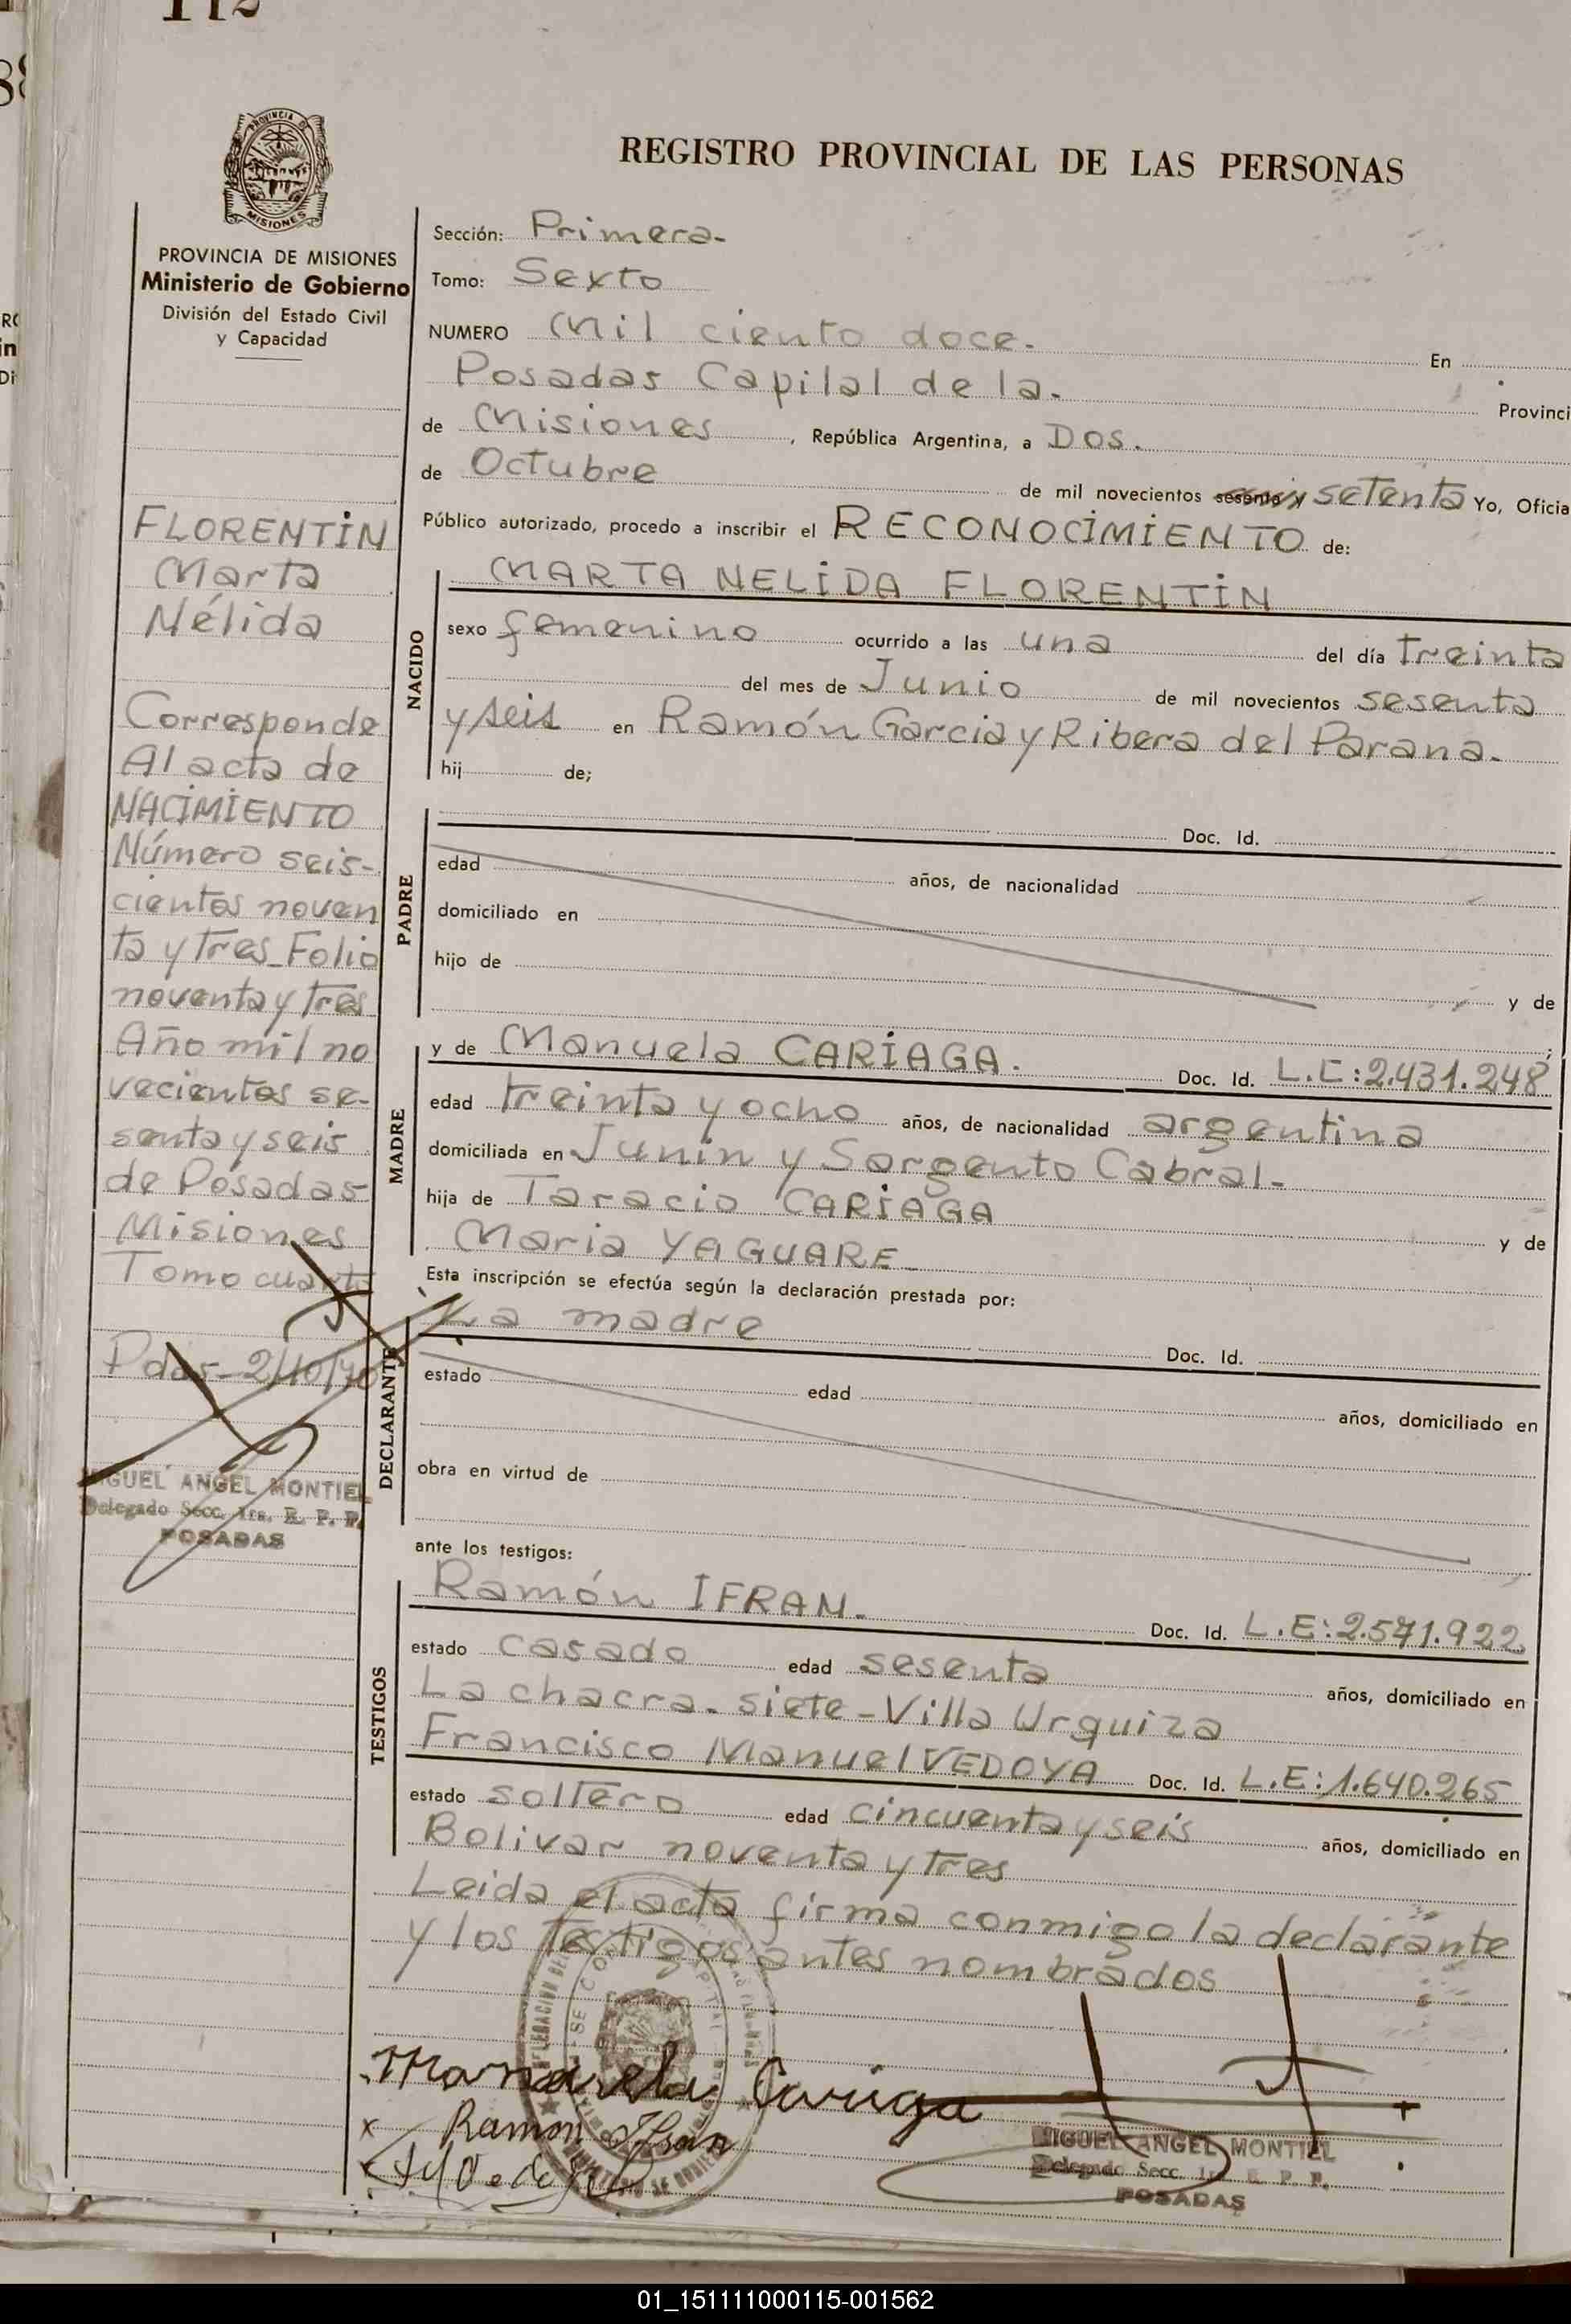 REGISTRO PROVINCIAL DE LAS PERSONAS
PROVINCIA DE MISIONES
Ministerio de Gobierno
División del Estado Civil
y Capacidad
FLORENTIN
Marta
Nélida
Corresponde
Al acta de
NACIMIENTO
Número seis-
cientos noven
ta y tres Folio
noventa y tres
Año mil no
vecientos se-
senta y seis
de Posadas
Misiones
Tomo cuarto
Pdas-2/10/70
MIGUEL ANGEL MONTIEL
Delegado Secc. 1ra. R. P. P.
POSADAS
Sección: Primera-
Tomo: Sexto
NUMERO Mil ciento doce. En
Posadas Capital de la. Provinci
de Misiones, República Argentina, a Dos.
de Octubre de mil novecientos sesenta y setenta Yo, Oficia
Público autorizado, procedo a inscribir el RECONOCIMIENTO de:
NACIDO
MARTA NELIDA FLORENTIN
sexo femenino ocurrido a las una del día treinta
del mes de Junio de mil novecientos sesenta
y seis en Ramón Garcia y Ribera del Parana.
hij de;
PADRE
Doc. Id.
edad años, de nacionalidad
domiciliado en
hijo de y de
MADRE
y de Manuela CARIAGA. Doc. Id. L.E:2.431.248
edad treinta y ocho años, de nacionalidad argentina
domiciliada en Junín y Sargento Cabral-
hija de Taracio CARIAGA y de
Maria YAGUARE-
Esta inscripción se efectúa según la declaración prestada por:
DECLARANTE
La madre Doc. Id.
estado edad años, domiciliado en
obra en virtud de
ante los testigos:
TESTIGOS
Ramón IFRAN. Doc. Id. L.E:2.571.922
estado casado edad sesenta años, domiciliado en
La chacra. siete-Villa Urquiza
Francisco Manuel VEDOYA Doc. Id. L.E:1.640.265
estado soltero edad cincuenta y seis años, domiciliado en
Bolivar noventa y tres
Leida el acta firma conmigo la declarante
y los testigos antes nombrados
Manuela Cariaga
Ramon Ifran
MIGUEL ANGEL MONTIEL
Delegado Secc. 1ra. R. P. P.
POSADAS
01_151111000115-001562